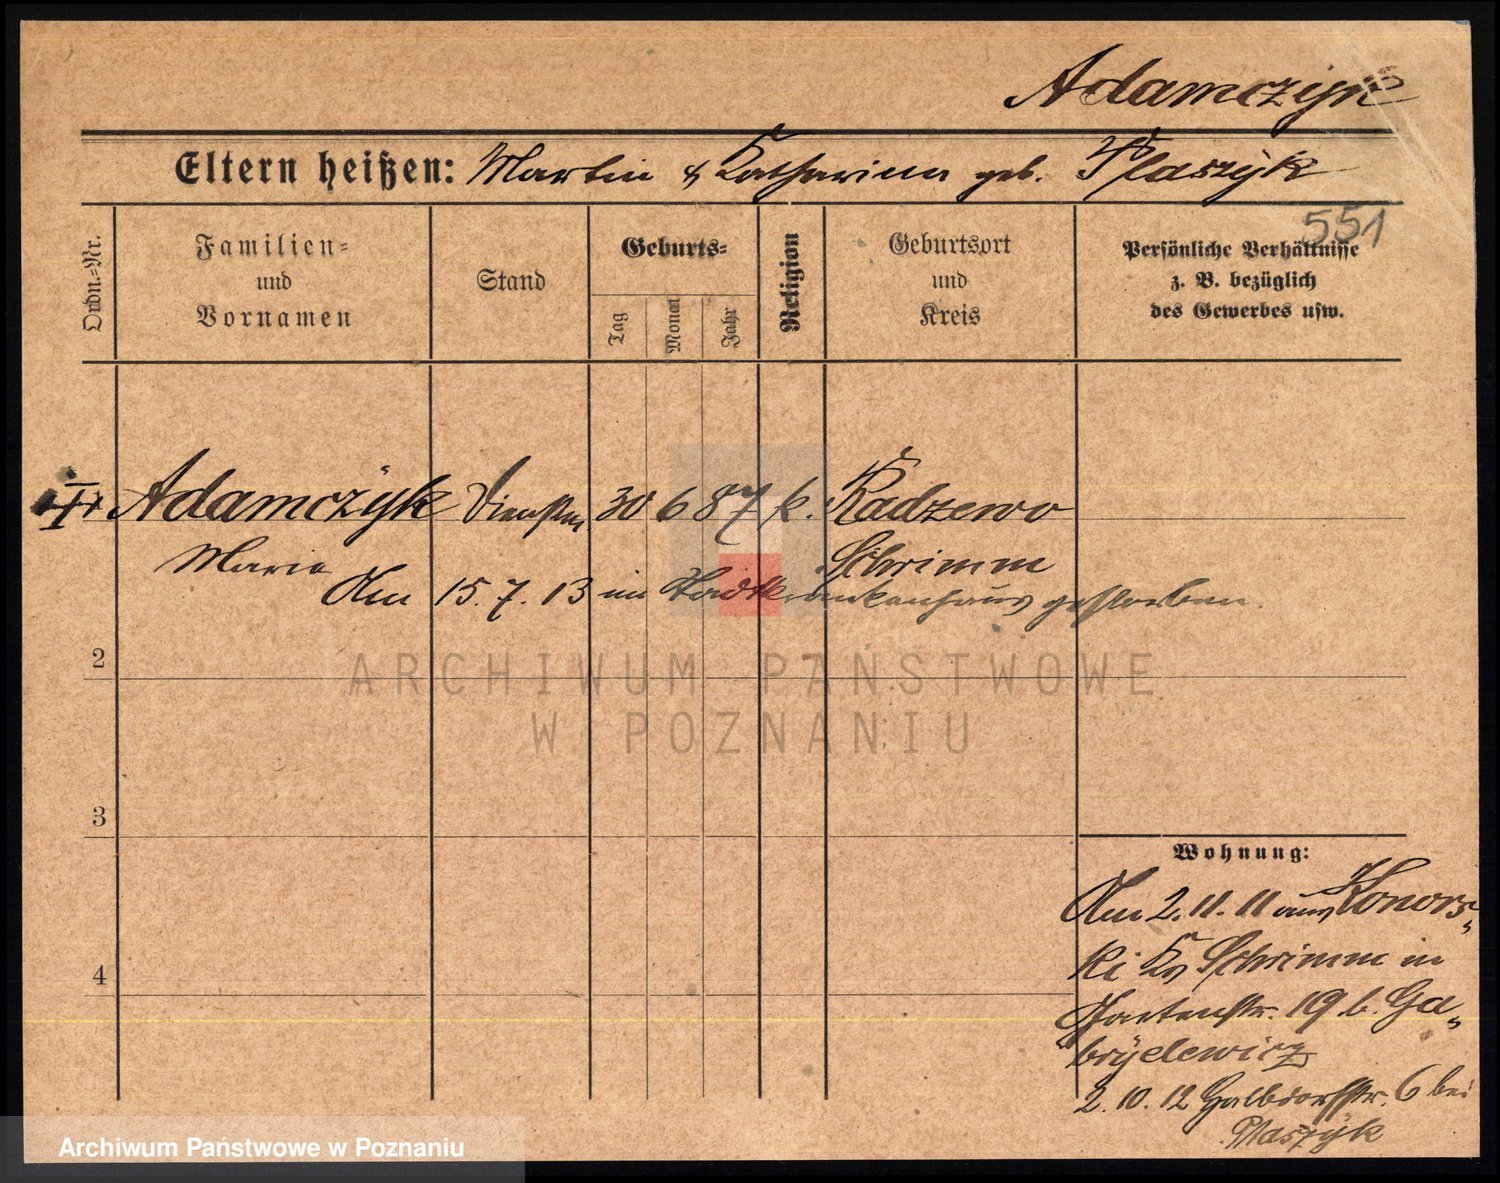 Adamczyk
Eltern heißen: Martin & Katharina geb. Ptaszyk
551
Ordn.-Nr.
Familien-
und
Vornamen
Stand
Geburts-
Tag
Monat
Jahr
Religion
Geburtsort
und
Kreis
Persönliche Verhältnisse
z. B. bezüglich
des Gewerbes usw.
Adamczyk Dienstm 30 6 87 k. Radzewo
Maria Schrimm
Am 15. 7. 13 im Stadtkrankenhaus gestorben.
2
3
4
Wohnung:
Am 2. 11. 11 aus Konors-
ki Kr Schrimm in
Gartenstr. 19 b. Ga-
bryelewicz
2. 10. 12 Halbdorfstr. 6 bei
Ptaszyk
ARCHIWUM PAŃSTWOWE
W POZNANIU
Archiwum Państwowe w Poznaniu